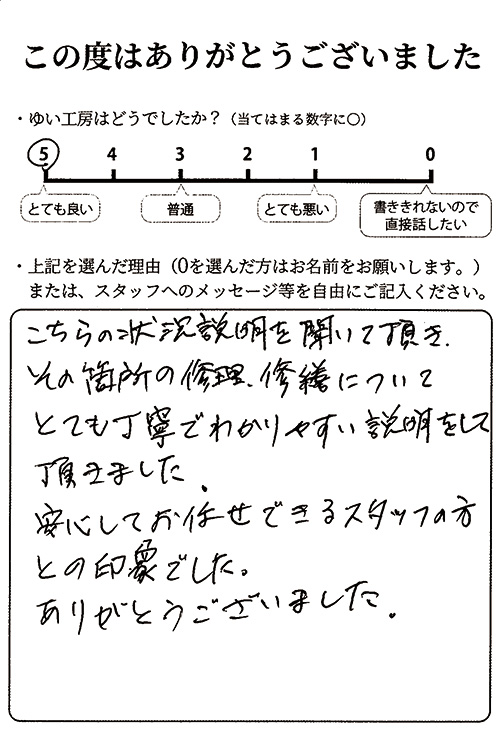 この度はありがとうございました
・ゆい工房はどうでしたか？（当てはまる数字に〇）
5 4 3 2 1 0
とても良い 普通 とても悪い 書ききれないので
直接話したい
・上記を選んだ理由（0を選んだ方はお名前をお願いします。）
または、スタッフへのメッセージ等を自由にご記入ください。
こちらの状況説明を聞いて頂き、
その箇所の修理、修繕について
とても丁寧でわかりやすい説明をして
頂きました。
安心してお任せできるスタッフの方
との印象でした。
ありがとうございました。